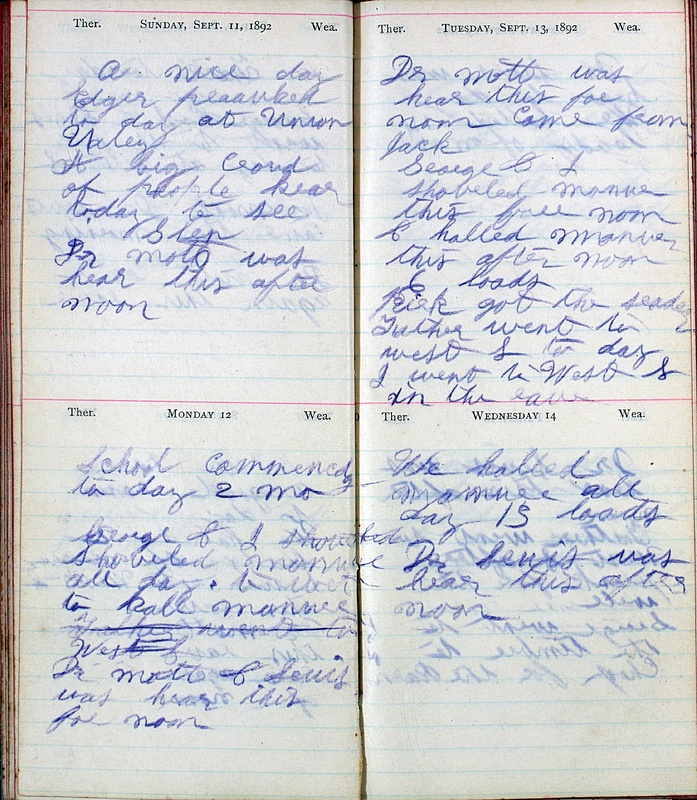 Ther. SUNDAY, SEPT. 11, 1892 Wea.
A nice day
Edger preauked
to day at Union
Valey
A big Croud
of people hear
today to see
Shep
Dr mott was
hear this after
noon
Ther. MONDAY 12 Wea.
School Commenced
to day 2 mo
George & I
shoveled manure
all day.
to hall manure
Father went to
West
Dr mott & Lewis
was hear this
foe noon
Ther. TUESDAY, SEPT. 13, 1892 Wea.
Dr mott was
hear this foe
noon Come from
Jack
George & I
shoveled manue
this foee noon
& halled manuer
this after noon
6 loads
Rick got the seader
Father went to
west S to day
I went to West S
in the eave
Ther. WEDNESDAY 14 Wea.
We halled
manuee all
day 15 loads
Dr Lewis was
hear this after
noon